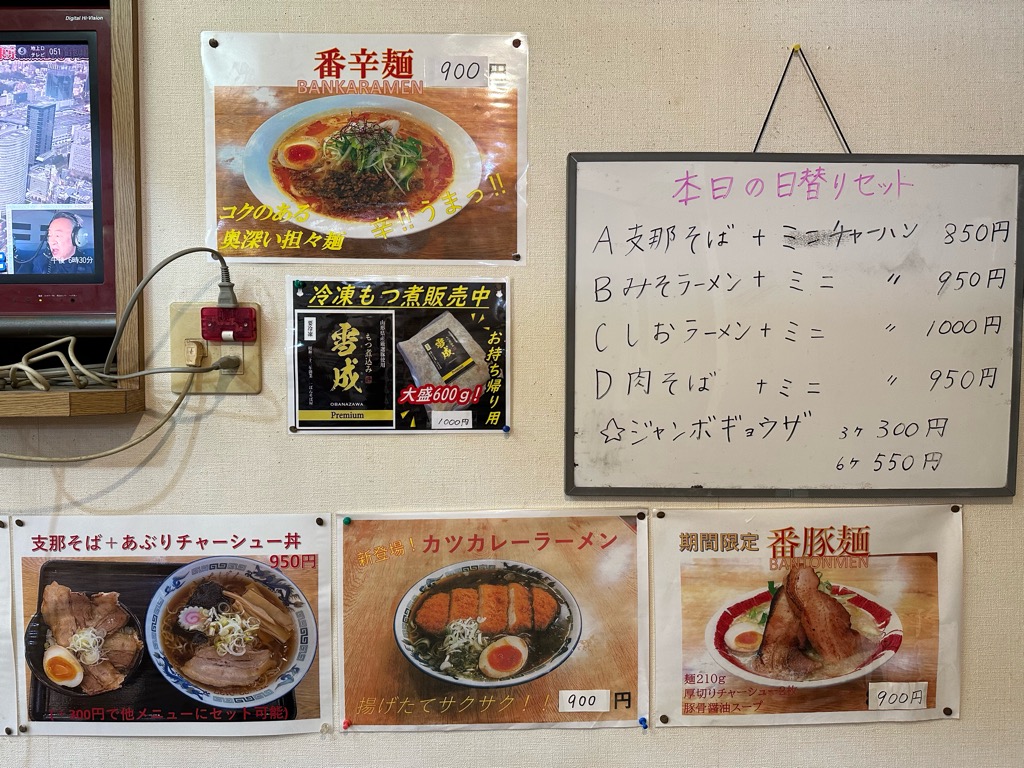 Digital Hi-Vision
地上D
テレビ 051
午後 6時30分
番辛麺 900円
BANKARAMEN
コクのある
奥深い担々麺
辛!!うまっ!!
冷凍もつ煮販売中
要冷凍
雪成
もつ煮込み
OBANAZAWA
Premium
雪成
お持ち帰り用
大盛600g!
1000円
本日の日替りセット
A 支那そば + ミニチャーハン 850円
B みそラーメン + ミニ 〃 950円
C しおラーメン + ミニ 〃 1000円
D 肉そば + ミニ 〃 950円
☆ジャンボギョウザ 3ケ 300円
6ケ 550円
支那そば+あぶりチャーシュー丼
950円
300円で他メニューにセット可能)
新登場! カツカレーラーメン
揚げたてサクサク!! 900円
期間限定 番豚麺
BANTONMEN
麺210g
厚切りチャーシュー
豚骨醤油スープ
900円